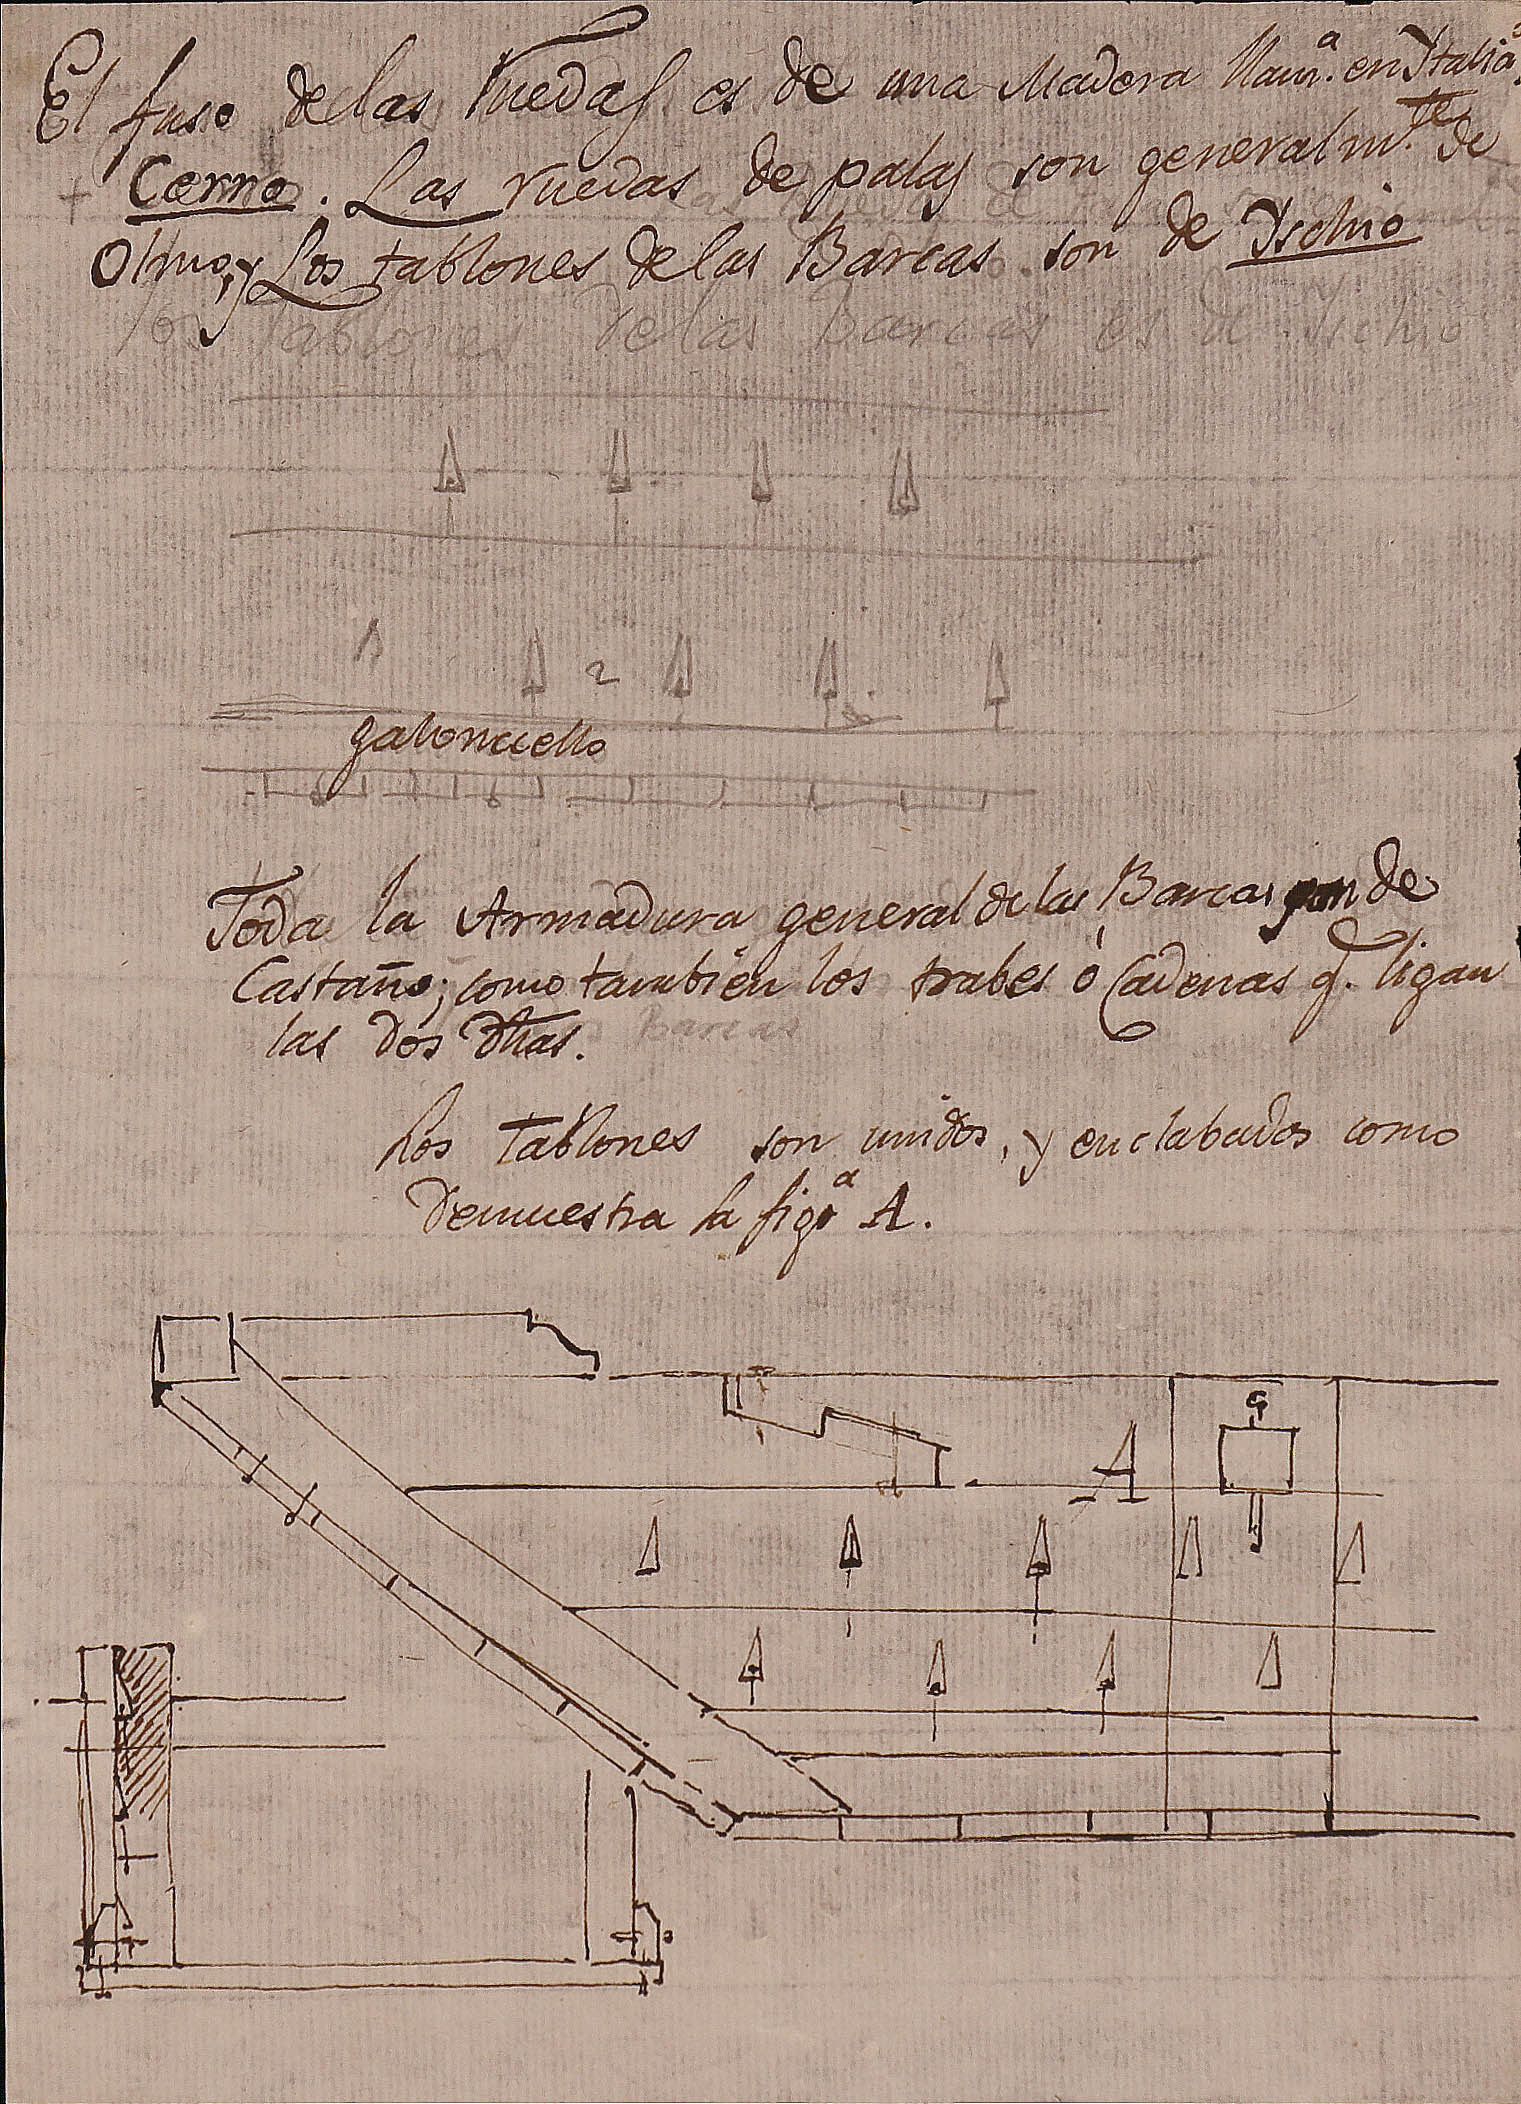 El fuso de las Ruedas es de una Madera llam.ª en Italia
Cerro. Las ruedas de palas son generalm.te de
Olmo, y Los tablones de las Barcas son de Yschio
los tablones de las Barcas es de Yschio
1 2
Toda la Armadura general de las Barcas son de
Castaño; como también los trabes ó Cadenas q. ligan
las dos dhas.
Barcas
Los tablones son unidos, y enclabados como
Demuestra la fig.ª A.
A